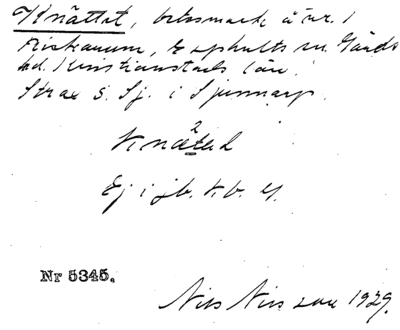 Knättet, betesmark å nr. 1
Kiskamum, Espholts sn. Gärds
hd. Kristianstads län.
Strax S. Sj. i Sjunnarp.
Knätəd
Ej i jb. Kb. el.
Nr 5345.
Nils Nilsson 1929.